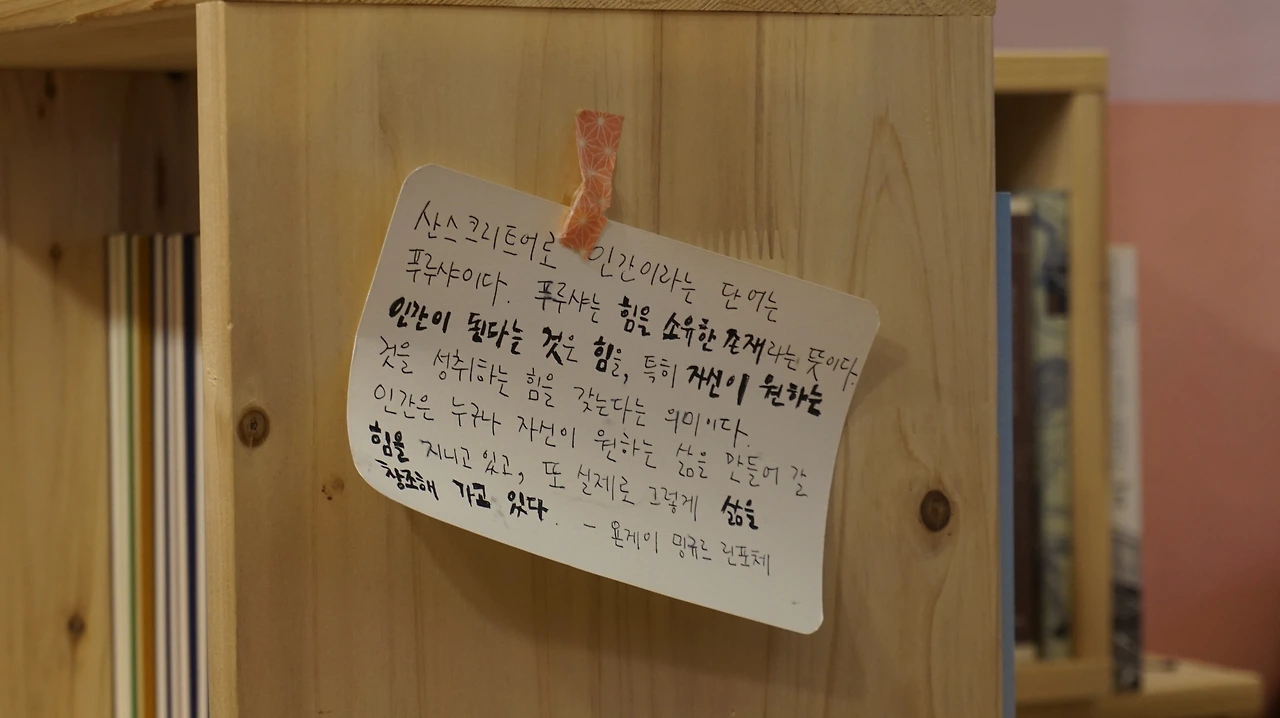 산스크리트어로 인간이라는 단어는
푸루샤이다. 푸루샤는 힘을 소유한 존재라는 뜻이다.
인간이 된다는 것은 힘을, 특히 자신이 원하는
것을 성취하는 힘을 갖는다는 의미이다.
인간은 누구나 자신이 원하는 삶을 만들어 갈
힘을 지니고 있고, 또 실제로 그렇게 삶을
창조해 가고 있다. - 욘게이 밍규르 린포체